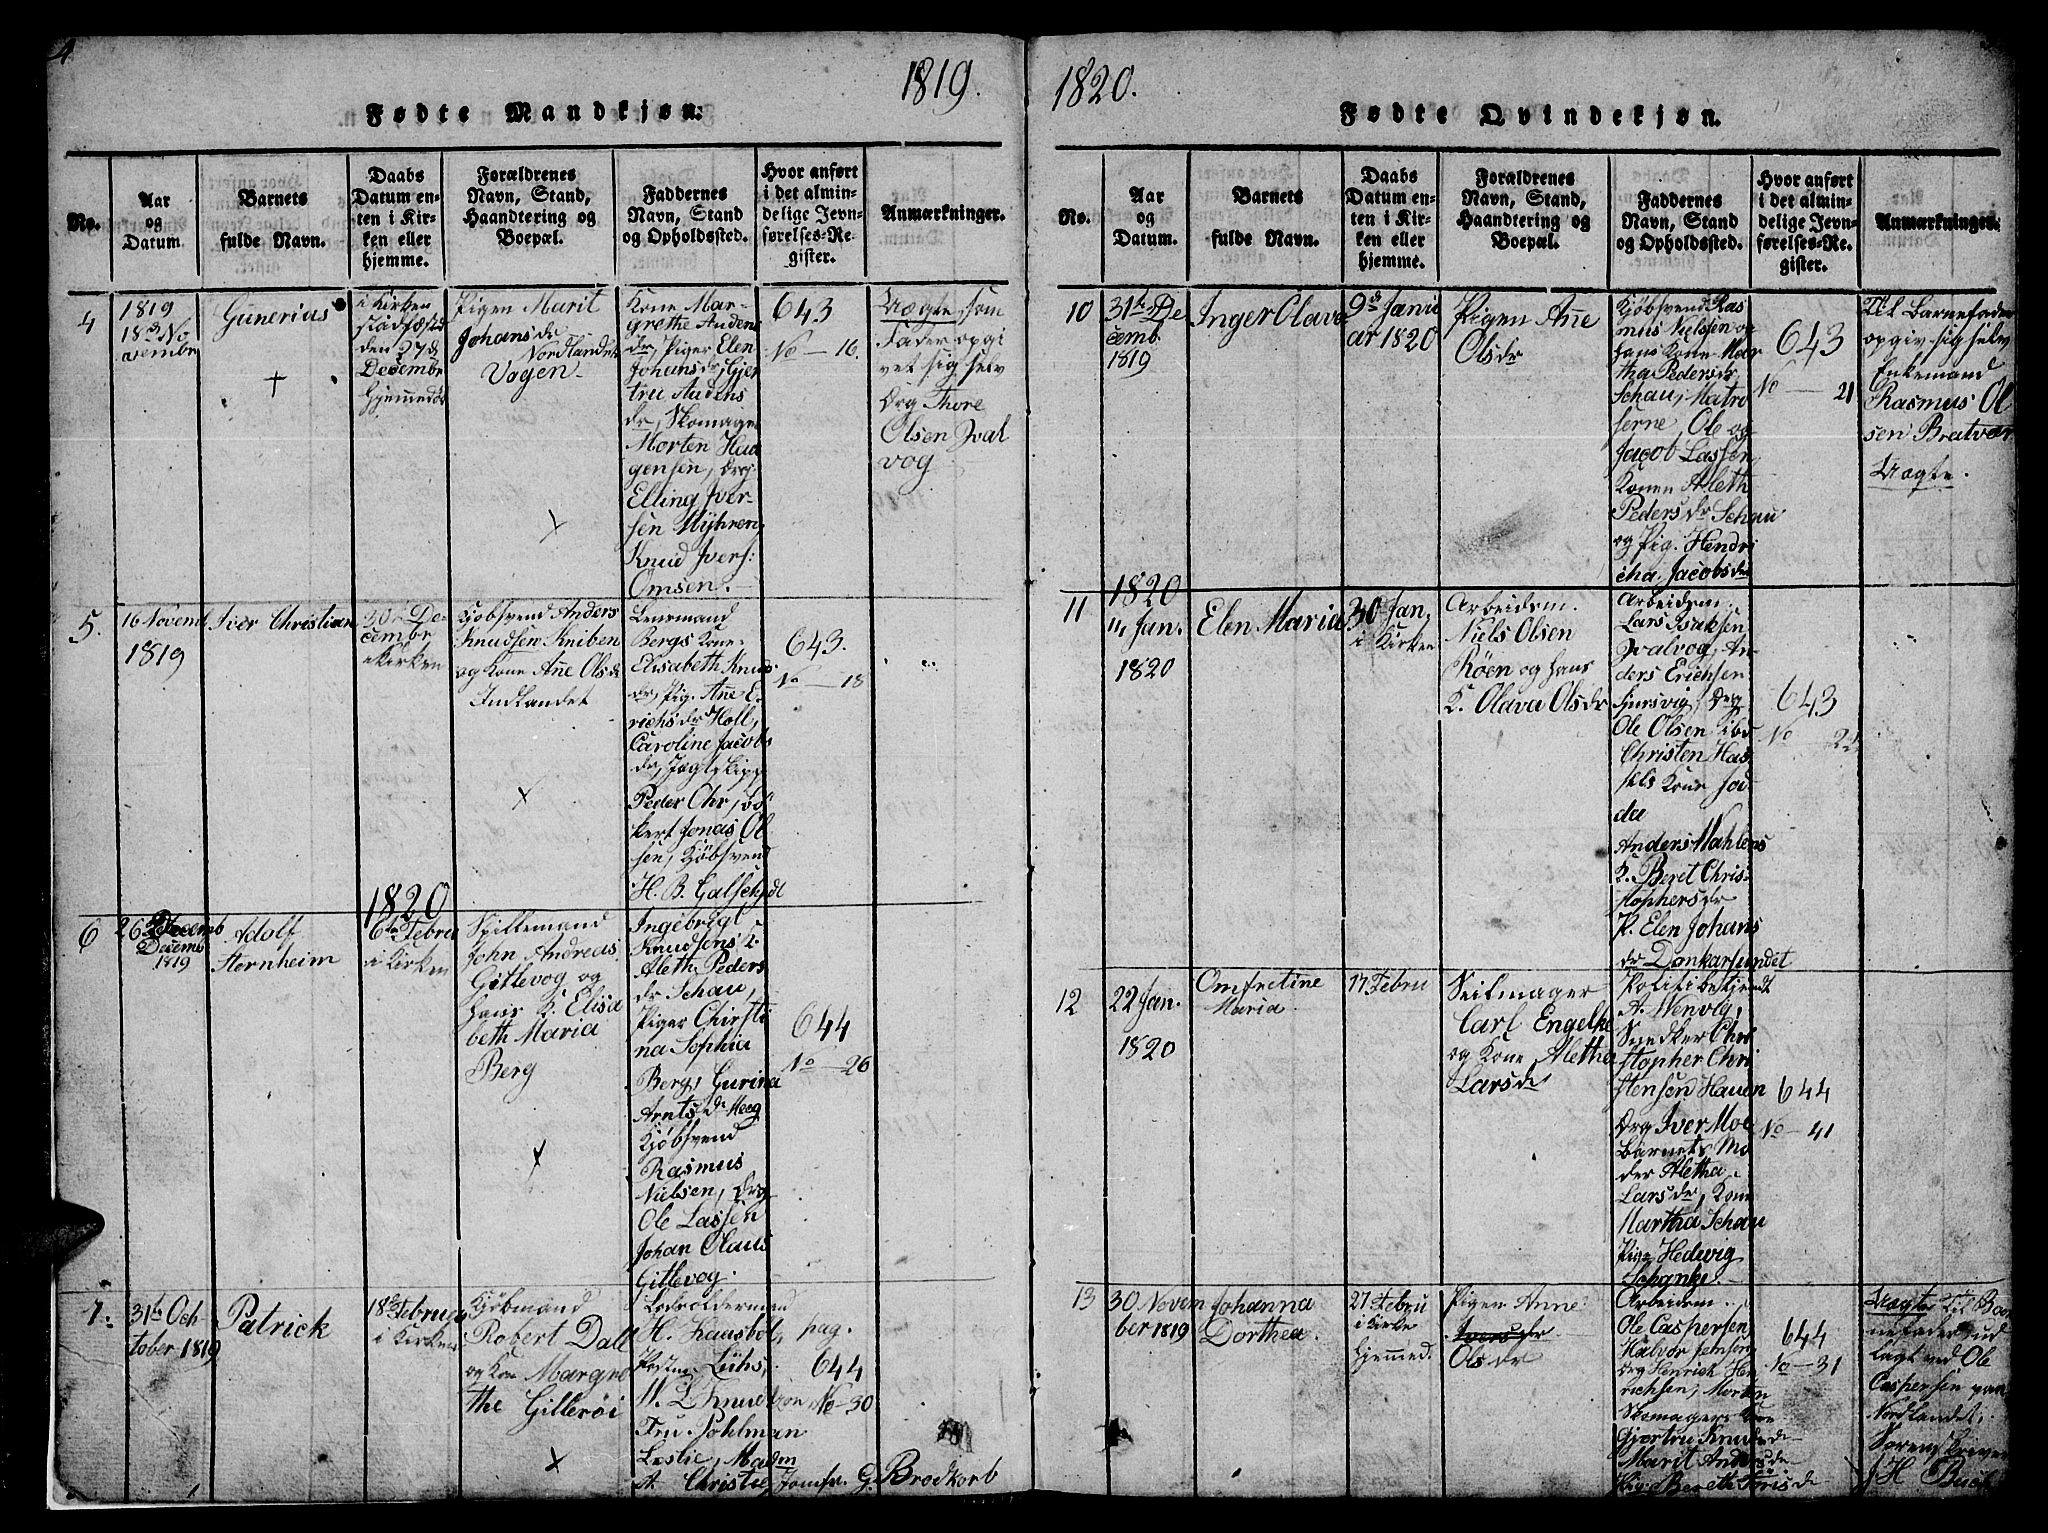 4
1819.
Fødte Mandkjøn.
No.
Aar
og
Datum.
Barnets
fulde Navn.
Daabs
Datum en-
ten i Kir-
ken eller
hjemme.
Forældrenes
Navn, Stand,
Haandtering og
Boepæl.
Faddernes
Navn, Stand
og Opholdssted.
Hvor anført
i det almin-
delige Jevn-
førelses-Re-
gister.
Anmærkninger.
4
1819
18de No
vembr
Gunerius
+
i Kirken
stadfæstet
den 27de
Decembr
Hjemmedøbt
Pigen Marit
Johansdr
Nordlandet
Vogen
Kone Mar-
grethe Anders
dr, Piger Elen
Johansdr, Gjer
tru Anders
dr, Skomager
Morten Haa
gensen, Drg
Elling Iver-
sen Myhren,
Knud Ivers:
Omsen.
643
No — 16.
Uægte, som
Fader opgi
vet sig selv
Drg Thore
Olsen Qval
vog
5.
16 Novemb
1819
Iver Christian
30te De-
cembr
i Kirken
Kjøbsvend Anders
Knudsen Kniben
og Kone Añe Olsdr
Indlandet
Lensmand
Bergs Kone
Elisabeth Knuds
dr, Pig. Añe E-
richsdr Holl,
Caroline Jacobs
dr, Jagtskipp
Peder Chr, Bø
kert Jonas Ol
sen, Kjøbsvend
H. B. Galschydt
643.
No — 18
6
26de Decemb
Decemb
1819
Adolf
Sternheim
1820
6te Febru
i Kirken
Spillemand
John Andreas
Gitlevog og
hans K. Elisa
beth Maria
Berg
Ingebrigt
Knudsens K.
Aleth Peders
dr Schau,
Piger Christi
na Sophia
Berg, Gurina
Arntsdr Moeg
Kjøbsvend
Rasmus
Nielsen, Drg
Ole Lassen
Johan Olaus
Gitlevog.
644
No — 26
7.
31te Oc
tober 1819
Patrick
18de Februar
i Kirken
Kjøbmand
Robert Dall
og Kone Margre
the Gillerøi
Lodsoldermand
H. Lausbol,
Postm. Lühs,
W. L. Knudtzon
Fru Pohlman
Leslie, Madm
A. Christie, Jomfr. G. Brodkorb
pag.
644
No — 30
1820.
Fødte Qvindekjøn.
No.
Aar
og
Datum.
Barnets
fulde Navn.
Daabs
Datum en-
ten i Kir-
ken eller
hjemme.
Forældrenes
Navn, Stand,
Haandtering og
Boepæl.
Faddernes
Navn, Stand
og Opholdssted.
Hvor anført
i det almin-
delige Jevn-
førelses-Re-
gister.
Anmærkninger.
10
31te De
cemb.
1819
Inger Olava
9de Janu
ar 1820
Pigen Añe
Olsdr
Kjøbsvend Ras
mus Nielsen og
hans Kone Mar
tha Pedersdr
Schau, Matro
serne, Ole og
Jacob Lassen
Konen Aleth
Pedersdr Schau
og Pig. Hendri
cha Jacobsdr
643
No — 21
Til Barnefader
opgiv sig selv
Enkemand
Rasmus Ol
sen Bratvær
Uægte.
11
1820
14 Jan.
1820
Elen Maria
30 Jan,
i Kirken
Arbeidsm.
Niels Olsen
Røen og hans
K. Olava Olsdr
Arbeidsm.
Lars Isaksen
Qvalvog, An-
ders Erichsen
Fursvig, Drg
Ole Olsen ibd
Christen Has
sels Kone Jod-
da
Anders Mahlens
K. Beret Chris-
tophersdr
P. Elen Johans
dr Dankarsundet
643
No — 22
12
22 Jan.
1820
Omfretine
Maria
17 Febru
Seilmager
Carl Engelke
og Kone Aletha
Larsdr
Politibetjent
A. Wenvig,
Snedker Chri
stopher Chri
stensen Hauen
Drg Iver Moe
Barnets Mo
der Aletha
Larsdr, Kone
Martha Schau
Pige Hedwig
Schanke
644
No — 41
13
30 Novem
ber 1819
Johanna
Dorthea.
27 Febru
i Kirke
Hjemmed.
Pigen Anne
Iversdr
Olsdr
Arbeidsm.
Ole Caspersen,
Halvor Jensen
Drg Henrich Hen
richsen, Morten
Skomagers Kone
Gjertru Knudsdr
Marit Andersdr
Pig: Bereth Irisdr
644
No — 31
Uægte Til Bar
nefader ud
lagt ved Ole
Caspersen paa
Nordlandet,
Sorenskriver
J H Buck